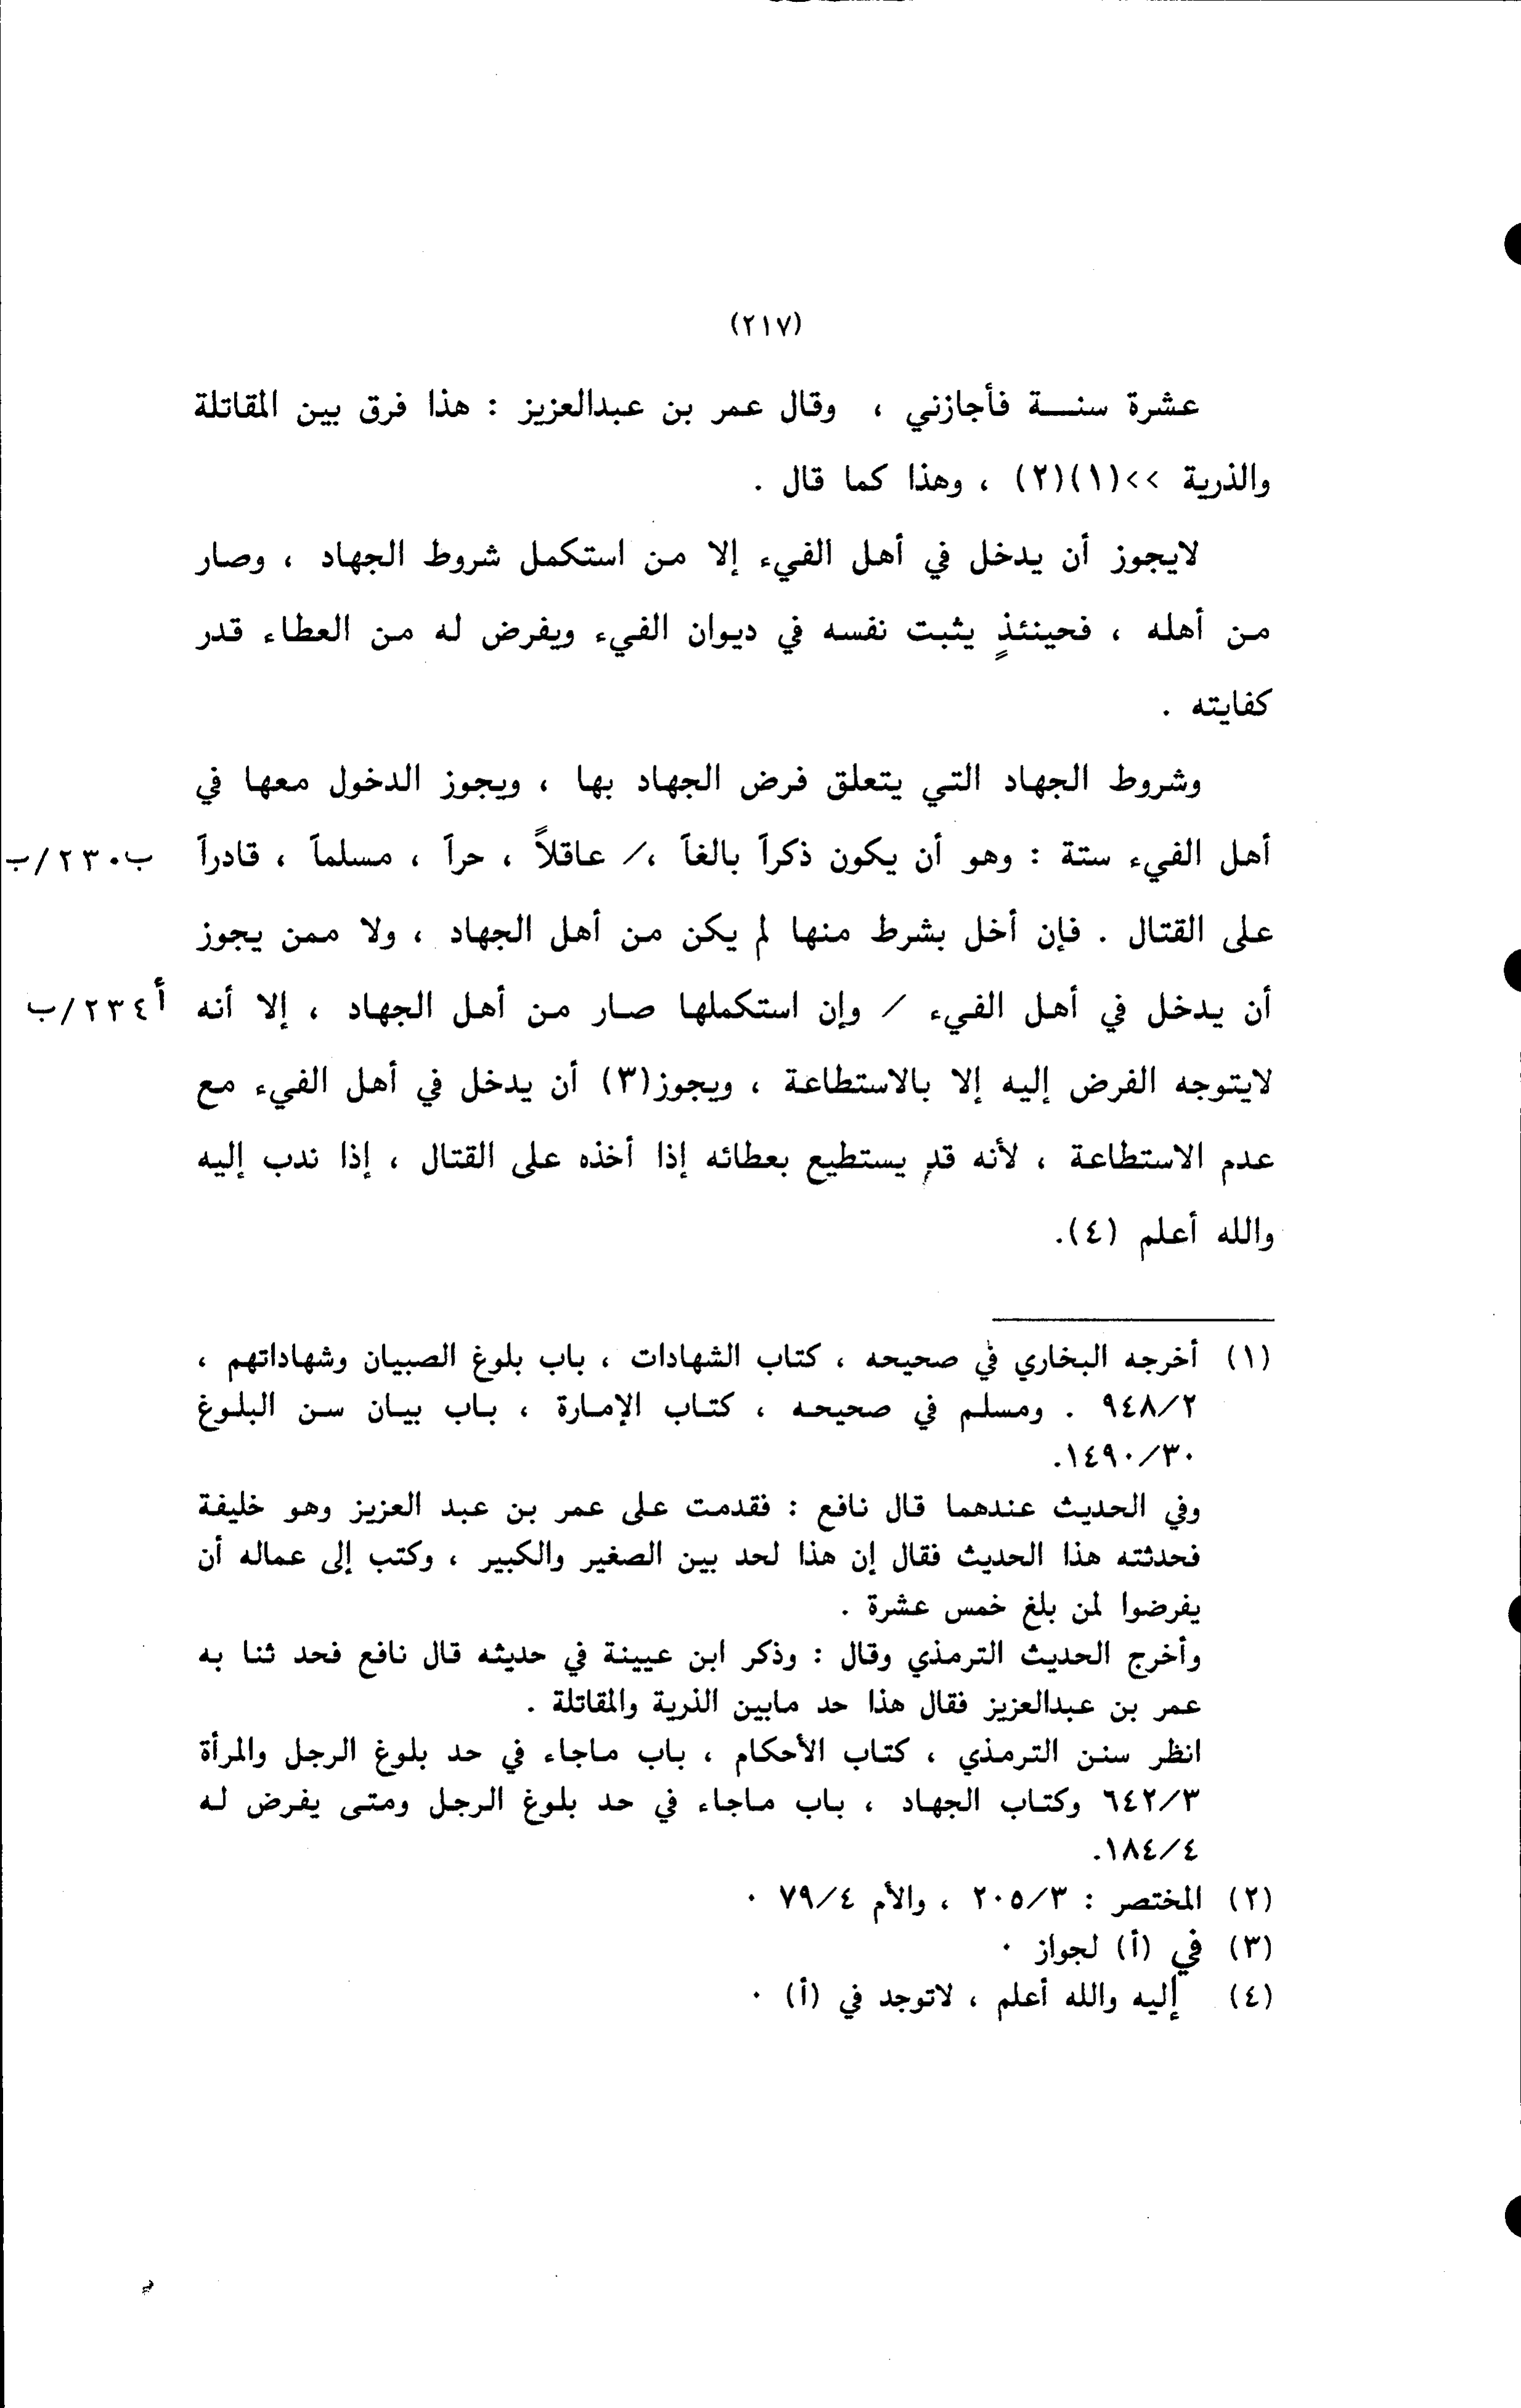 (٢١٧)
عشرة سنـــة فأجازني ، وقال عمر بن عبدالعزيز : هذا فرق بين المقاتلة
والذرية >>(١)(٢) ، وهذا كما قال .
لايجوز أن يدخل في أهل الفيء إلا من استكمل شروط الجهاد ، وصار
من أهله ، فحينئذٍ يثبت نفسه في ديوان الفيء ويفرض له من العطاء قدر
كفايته .
وشروط الجهاد التي يتعلق فرض الجهاد بها ، ويجوز الدخول معها في
أهل الفيء ستة : وهو أن يكون ذكراً بالغاً ،/ عاقلاً ، حراً ، مسلماً ، قادراً ب٢٣٠/ب
على القتال . فإن أخل بشرط منها لم يكن من أهل الجهاد ، ولا ممن يجوز
أن يدخل في أهل الفيء / وإن استكملها صار من أهل الجهاد ، إلا أنه أ٢٣٤/ب
لايتوجه الفرض إليه إلا بالاستطاعة ، ويجوز(٣) أن يدخل في أهل الفيء مع
عدم الاستطاعة ، لأنه قد يستطيع بعطائه إذا أخذه على القتال ، إذا ندب إليه
والله أعلم (٤).
(١) أخرجه البخاري في صحيحه ، كتاب الشهادات ، باب بلوغ الصبيان وشهاداتهم ،
٩٤٨/٢ . ومسلم في صحيحه ، كتاب الإمارة ، باب بيان سن البلوغ
١٤٩٠/٣٠.
وفي الحديث عندهما قال نافع : فقدمت على عمر بن عبد العزيز وهو خليفة
فحدثته هذا الحديث فقال إن هذا لحد بين الصغير والكبير ، وكتب إلى عماله أن
يفرضوا لمن بلغ خمس عشرة .
وأخرج الحديث الترمذي وقال : وذكر ابن عيينة في حديثه قال نافع فحد ثنا به
عمر بن عبدالعزيز فقال هذا حد مابين الذرية والمقاتلة .
انظر سنن الترمذي ، كتاب الأحكام ، باب ماجاء في حد بلوغ الرجل والمرأة
٦٤٢/٣ وكتاب الجهاد ، باب ماجاء في حد بلوغ الرجل ومتى يفرض له
١٨٤/٤.
(٢) المختصر : ٢٠٥/٣ ، والأم ٧٩/٤ .
(٣) في (أ) لجواز .
(٤) إليه والله أعلم ، لاتوجد في (أ) .